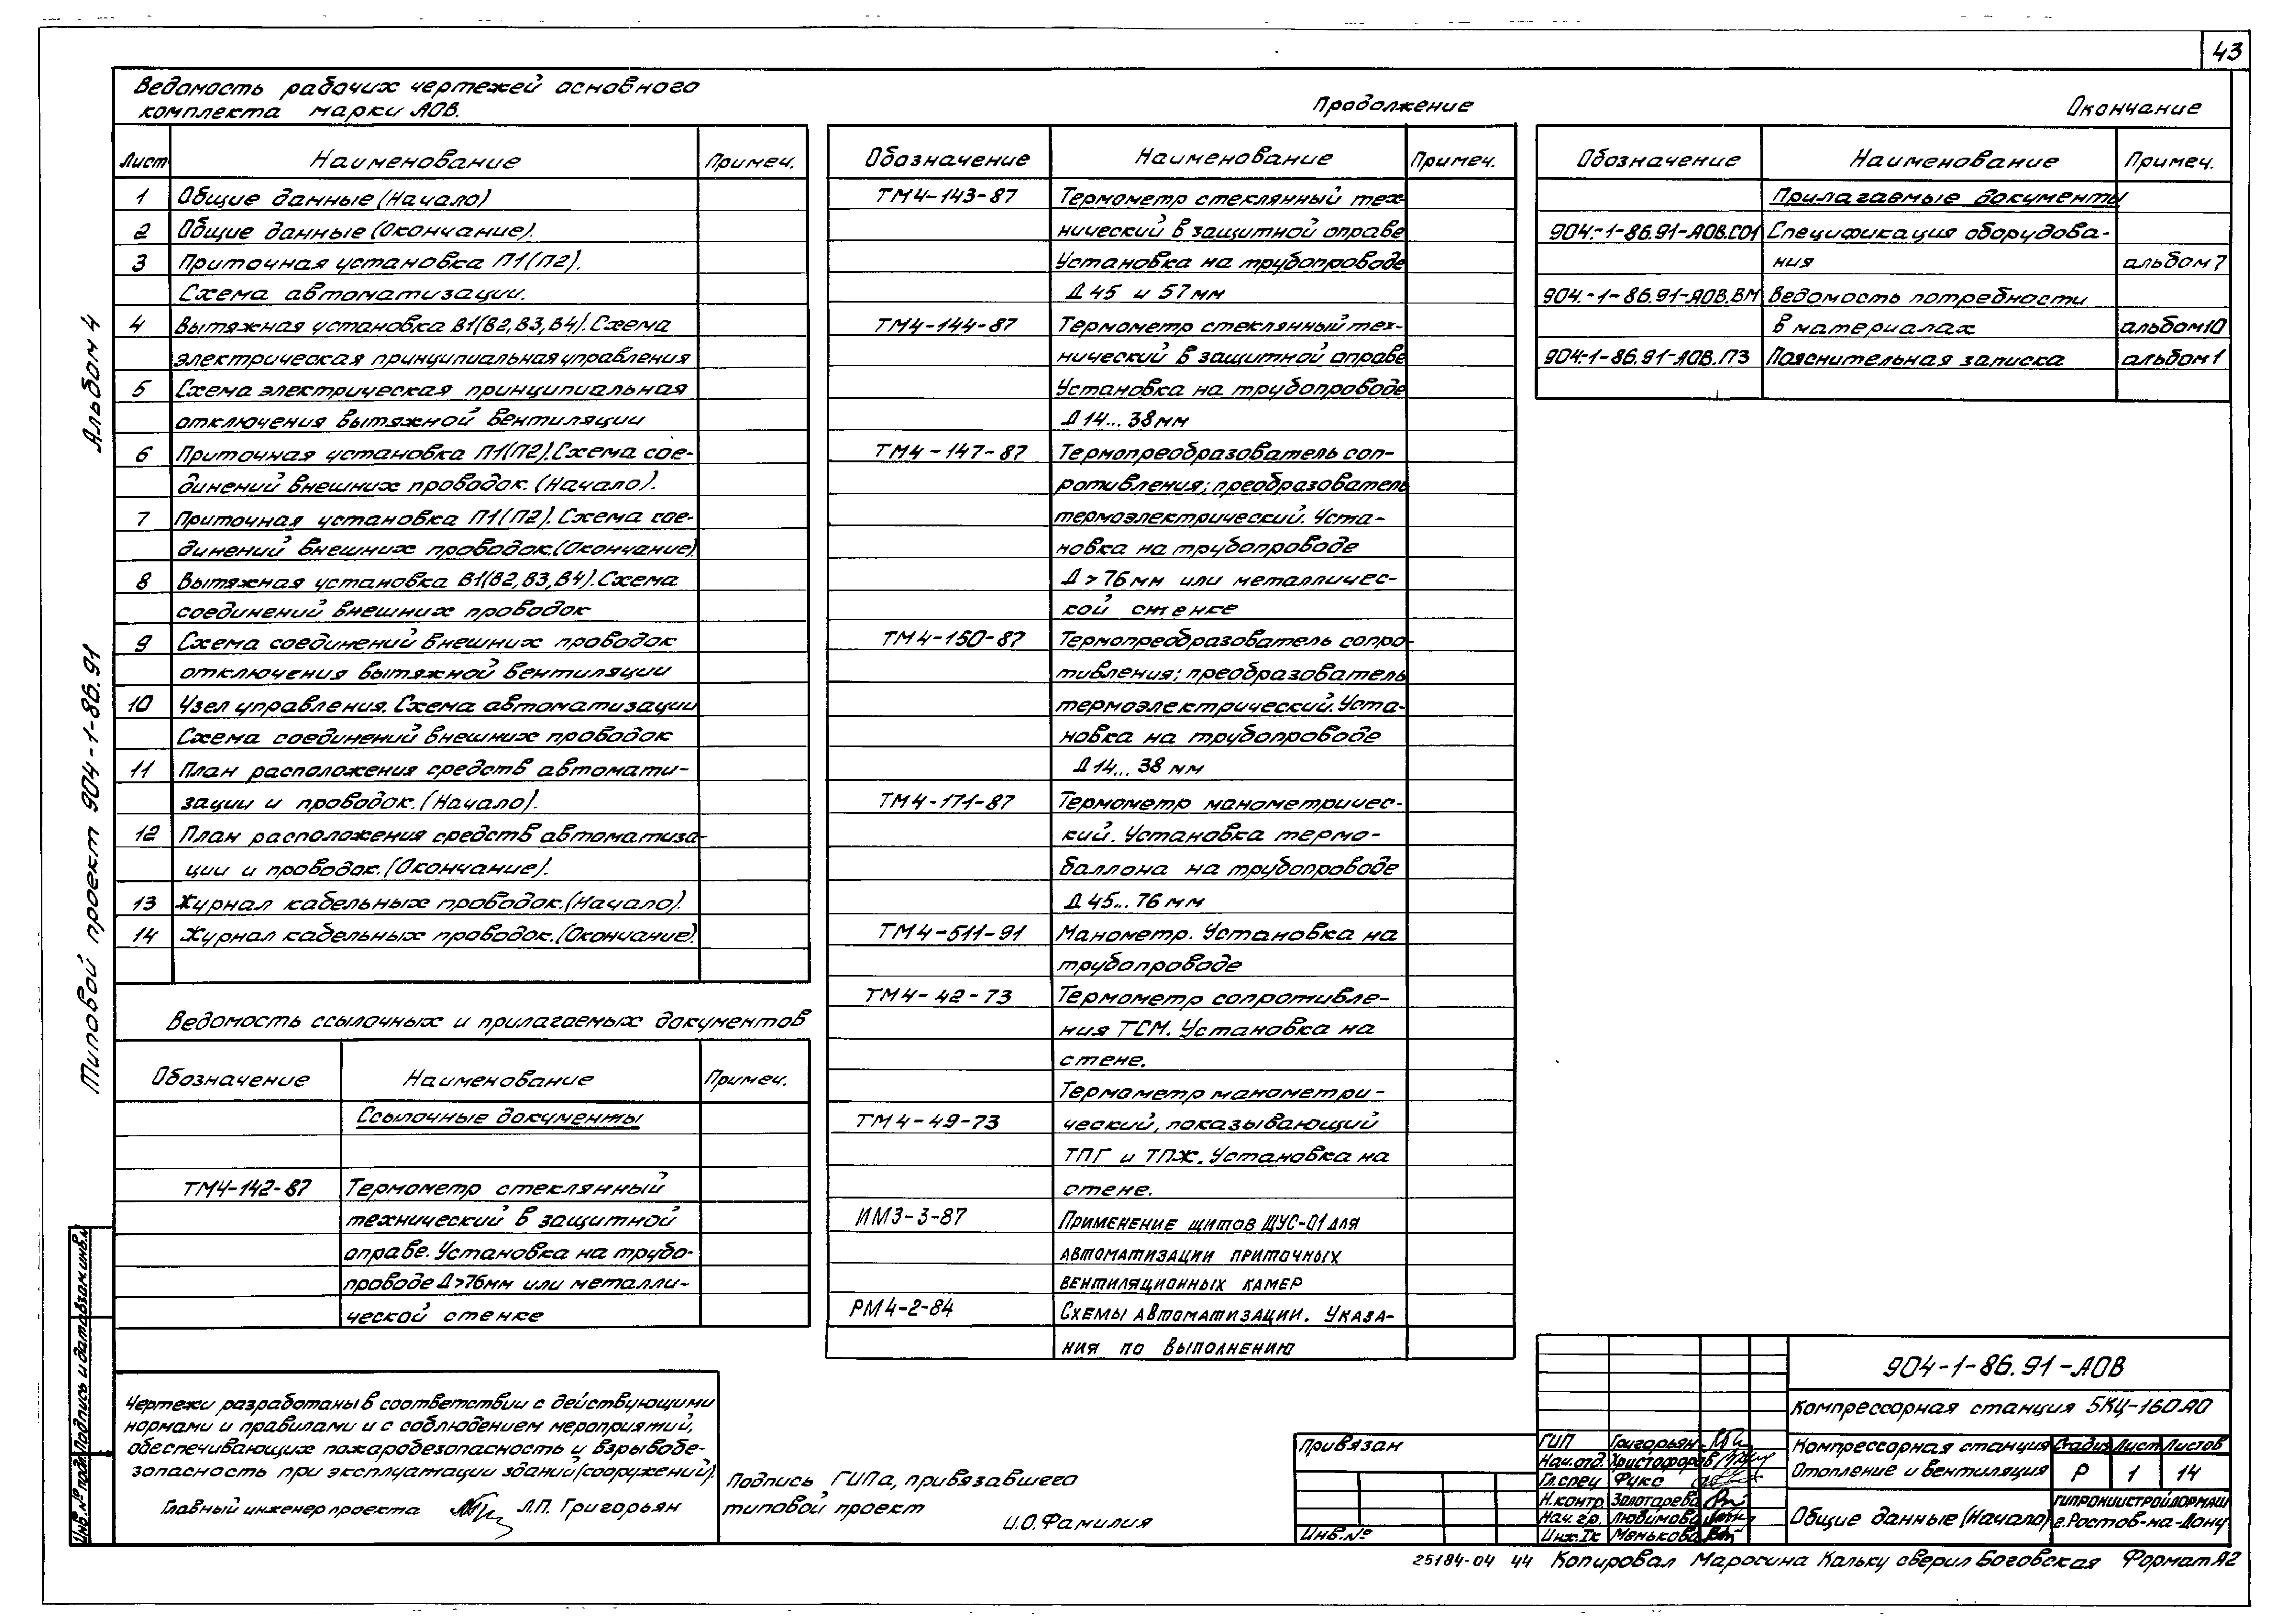 43
Ведомость рабочих чертежей основного
комплекта марки АОВ.
Лист Наименование Примеч.
1 Общие данные (Начало)
2 Общие данные (Окончание).
3 Приточная установка П1(П2).
Схема автоматизации.
4 Вытяжная установка В1(В2,В3,В4). Схема
электрическая принципиальная управления
5 Схема электрическая принципиальная
отключения вытяжной вентиляции
6 Приточная установка П1(П2). Схема сое-
динений внешних проводок. (Начало).
7 Приточная установка П1(П2). Схема сое-
динений внешних проводок. (Окончание).
8 Вытяжная установка В1(В2,В3,В4). Схема
соединений внешних проводок
9 Схема соединений внешних проводок
отключения вытяжной вентиляции
10 Узел управления. Схема автоматизации
Схема соединений внешних проводок
11 План расположения средств автомати-
зации и проводок. (Начало).
12 План расположения средств автоматиза-
ции и проводок. (Окончание).
13 Журнал кабельных проводок. (Начало).
14 Журнал кабельных проводок. (Окончание).
Ведомость ссылочных и прилагаемых документов
Обозначение Наименование Примеч.
Ссылочные документы
ТМ4-142-87 Термометр стеклянный
технический в защитной
оправе. Установка на трубо-
проводе Д>76мм или металли-
ческой стенке
Продолжение
Обозначение Наименование Примеч.
ТМ4-143-87 Термометр стеклянный тех-
нический в защитной оправе
Установка на трубопроводе
Д 45 и 57мм
ТМ4-144-87 Термометр стеклянный тех-
нический в защитной оправе
Установка на трубопроводе
Д 14... 38мм
ТМ4-147-87 Термопреобразователь соп-
ротивления; преобразователь
термоэлектрический. Уста-
новка на трубопроводе
Д > 76мм или металличес-
кой стенке
ТМ4-150-87 Термопреобразователь сопро-
тивления; преобразователь
термоэлектрический. Уста-
новка на трубопроводе
Д 14... 38 мм
ТМ4-171-87 Термометр манометричес-
кий. Установка термо-
баллона на трубопроводе
Д 45... 76мм
ТМ4-511-91 Манометр. Установка на
трубопроводе
ТМ4-42-73 Термометр сопротивле-
ния ТСМ. Установка на
стене.
Термометр манометри-
ТМ4-49-73 ческий, показывающий
ТПГ и ТПЖ. Установка на
стене.
ИМ3-3-87 Применение щитов ЩУС-01 для
автоматизации приточных
вентиляционных камер
РМ4-2-84 Схемы автоматизации. Указа-
ния по выполнению
Окончание
Обозначение Наименование Примеч.
Прилагаемые документы
904.-1-86.91-АОВ.СО1 Спецификация оборудова-
ния альбом 7
904.-1-86.91-АОВ.ВМ Ведомость потребности
в материалах альбом 10
904-1-86.91-АОВ.ПЗ Пояснительная записка альбом 1
Альбом 4
Типовой проект 904-1-86.91
Инв.№ подл Подпись и дата Взам инв.№
Чертежи разработаны в соответствии с действующими
нормами и правилами и с соблюдением мероприятий,
обеспечивающих пожаробезопасность и взрывобе-
зопасность при эксплуатации зданий (сооружений).
Главный инженер проекта Л.П. Григорьян
Подпись ГИПа, привязавшего
типовой проект
И.О.Фамилия
Привязан
Инв.№
ГИП Григорьян
Нач.отд. Христофоров
Гл.спец Фукс
Н.контр. Золотарева
Нач.гр. Любимова
Инж.Iк Менькова
904-1-86.91-АОВ
Компрессорная станция 5КЦ-160А0
Компрессорная станция
Отопление и вентиляция
Стадия Лист Листов
Р 1 14
Общие данные (Начало)
ГИПРОНИИСТРОЙДОРМАШ
г.Ростов-на-Дону
25184-04 44 Копировал Маросина Кальку сверил Боговская Формат А2